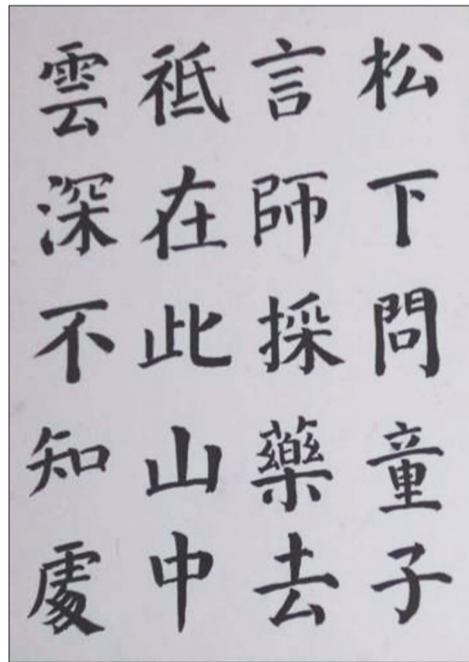 松下問童子
言師採藥去
祗在此山中
雲深不知處